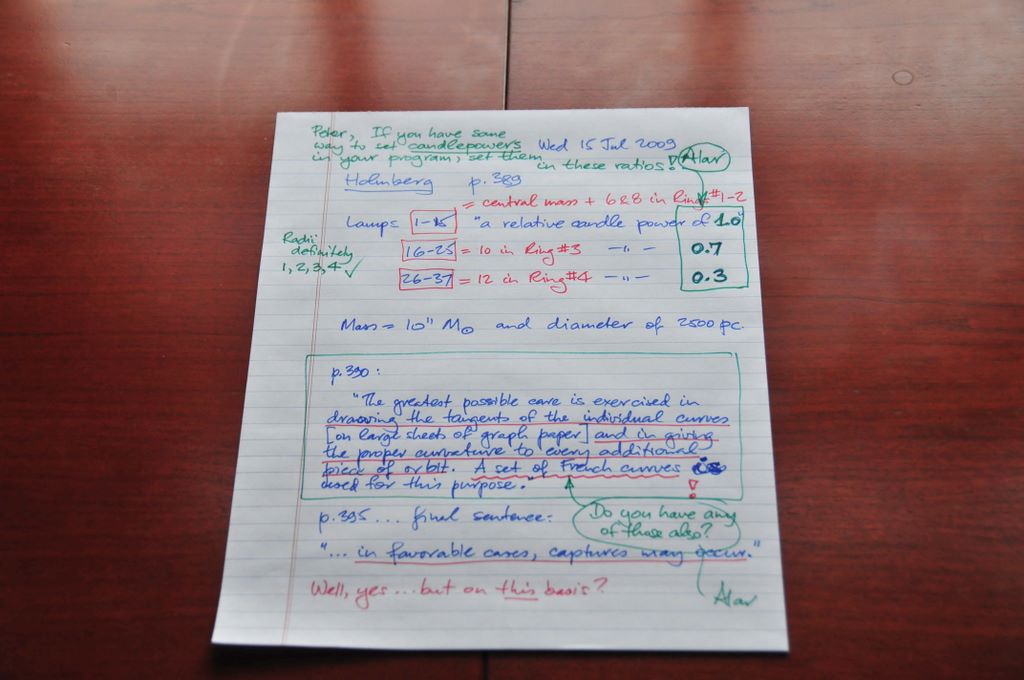 Peter, If you have some
way to set candlepowers Wed 15 Jul 2009
in your program, set them in these ratios! Alar
Holmberg p. 389
= central mass + 6&8 in Ring #1-2
Lamps 1-15 "a relative candle power of 1.0"
Radii definitely 1, 2, 3, 4 ✓
16-25 = 10 in Ring #3 — " — 0.7
26-37 = 12 in Ring #4 — " — 0.3
Mass = 10¹¹ M⊙ and diameter of 2500 pc.
p. 390:
"The greatest possible care is exercised in
drawing the tangents of the individual curves
[on large sheets of graph paper] and in giving
the proper curvature to every additional
piece of orbit. A set of French curves is
used for this purpose." !
p. 395 ... final sentence:
Do you have any
of those also?
"... in favorable cases, captures may occur."
Well, yes ... but on this basis?
Alar